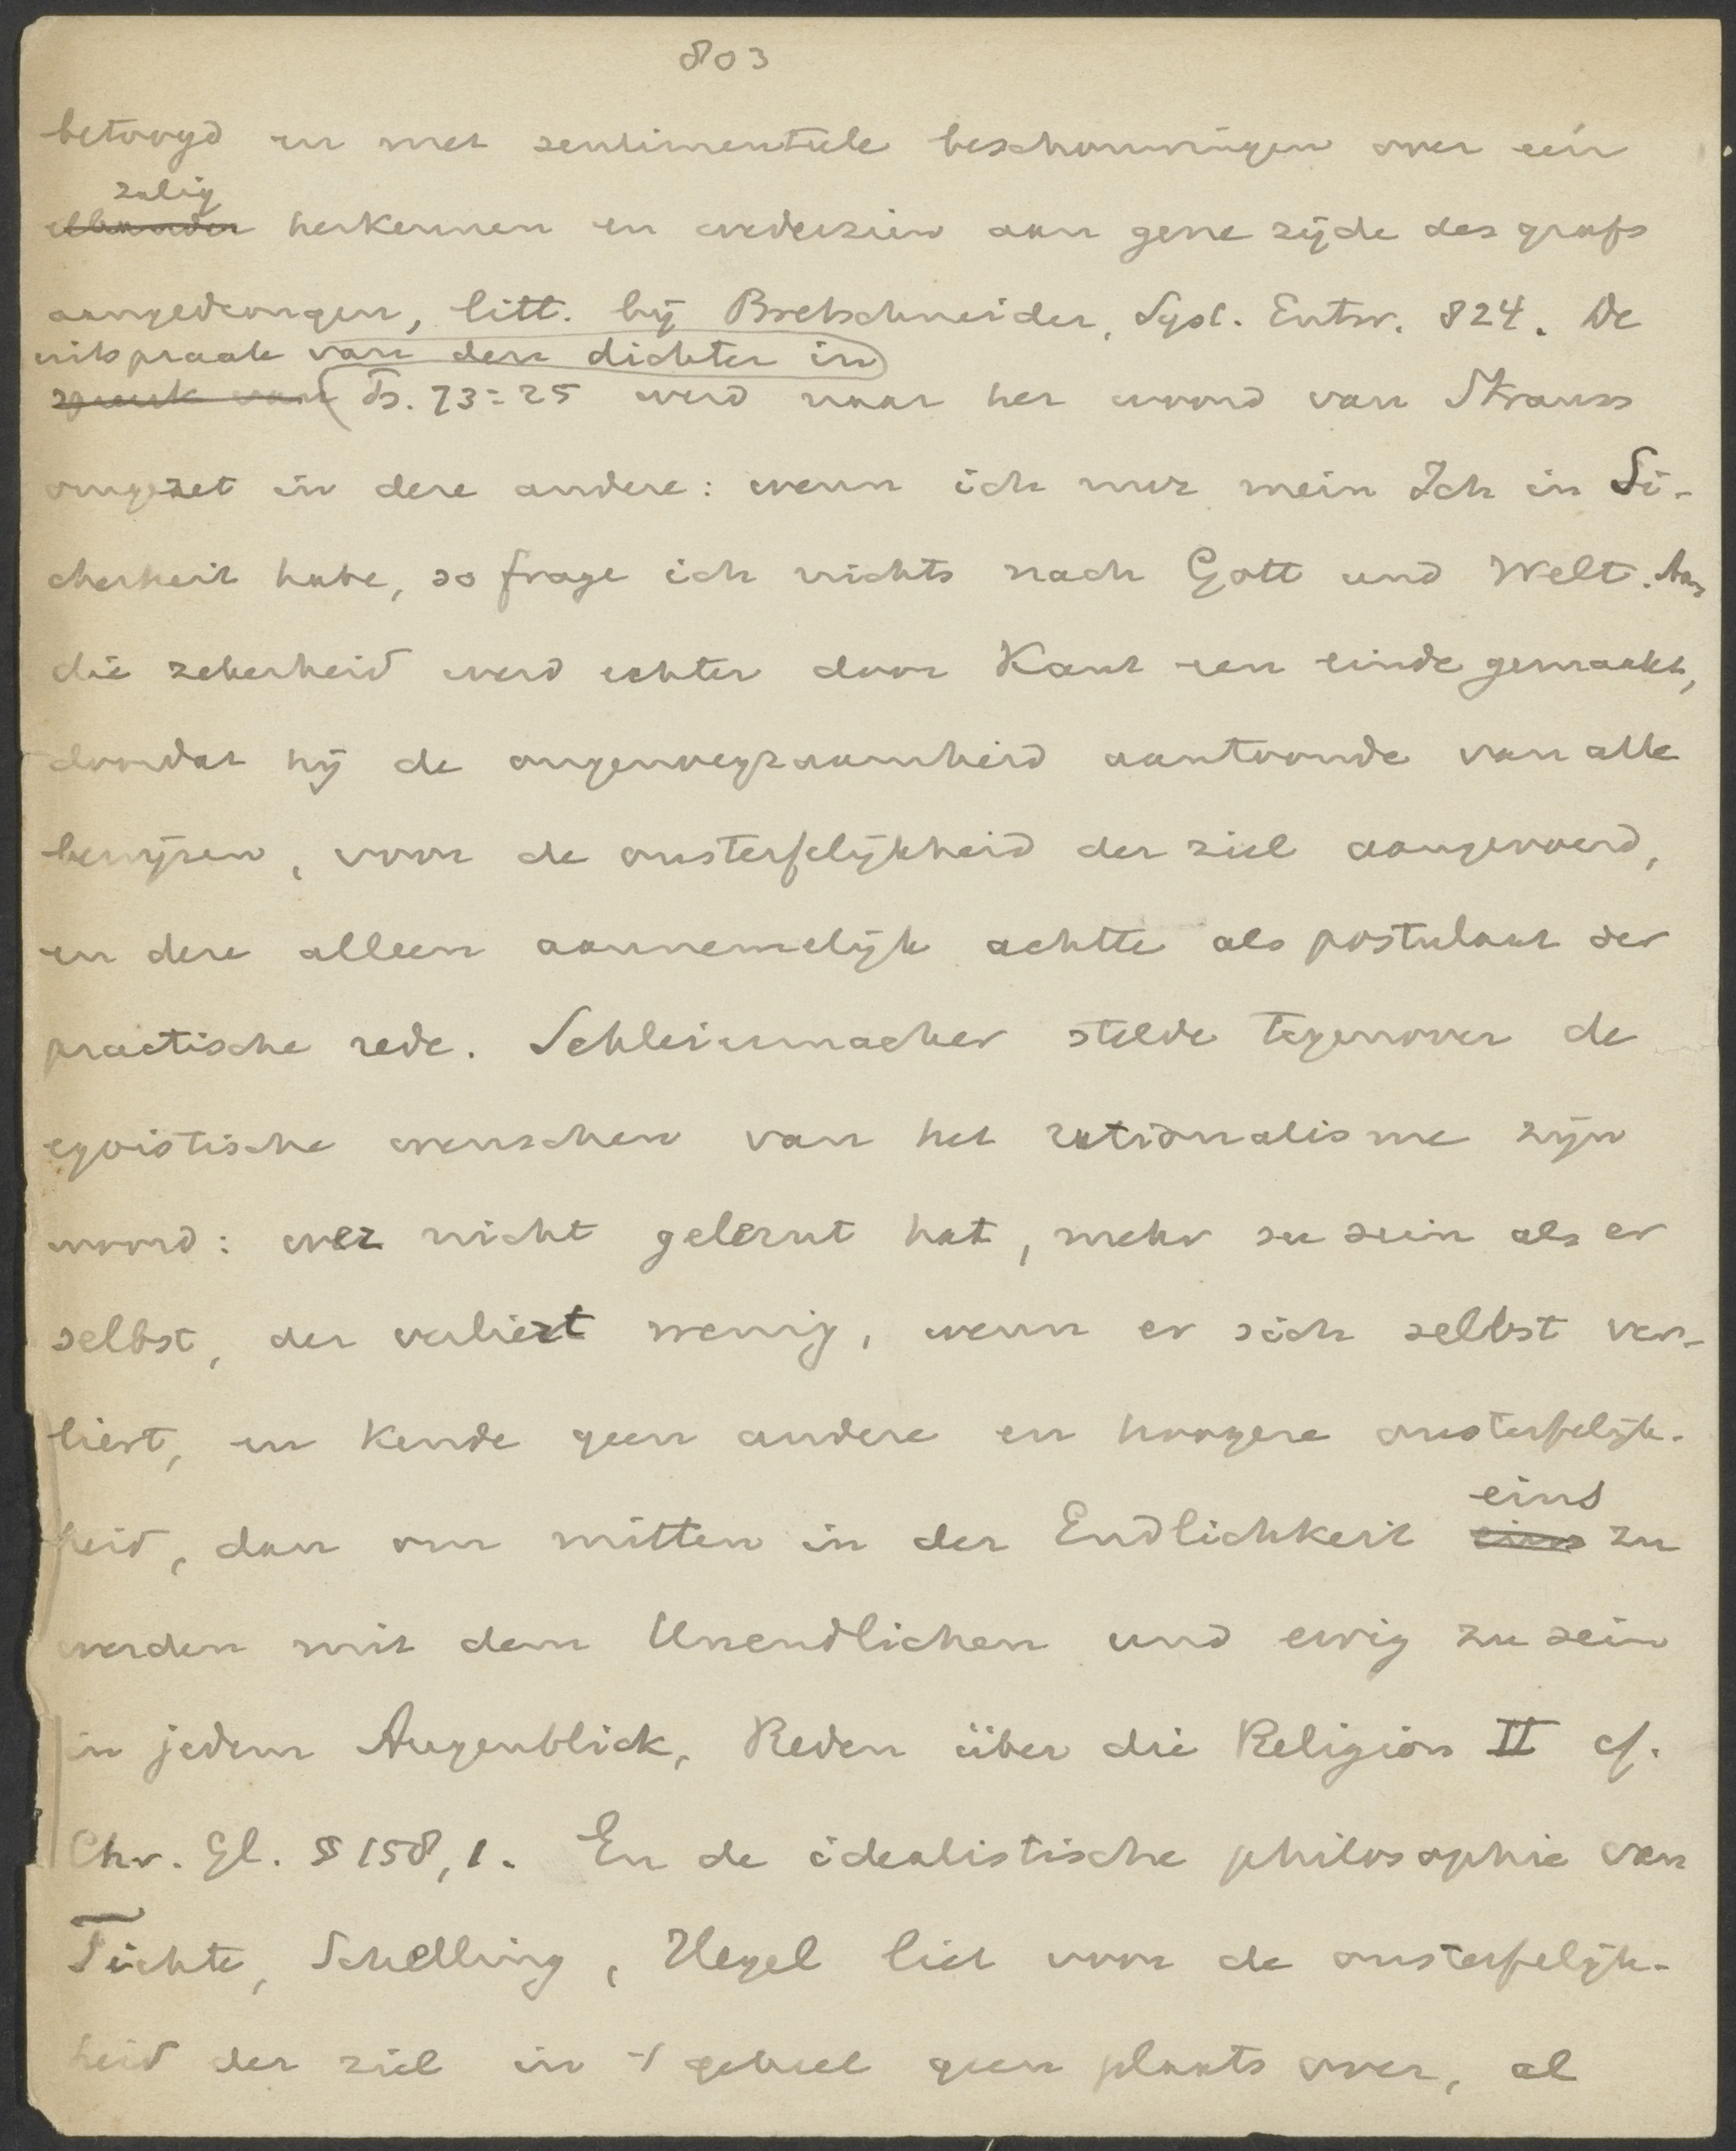 803
betoogd en met sentimenteele beschouwingen over een
zalig
elkander herkennen en wederzien aan gene zijde des grafs
aangedrongen, litt. bij Bretschneider, Syst. Entw. 824. De
uitspraak van den dichter in
spreuk van Ps. 73:25 werd naar het woord van Strauss
omgezet in deze andere: wenn ich nur mein Ich in Si-
cherheit habe, so frage ich nichts nach Gott und Welt. Aan
die zekerheid werd echter door Kant een einde gemaakt,
doordat hij de ongenoegzaamheid aantoonde van alle
bewijzen, voor de onsterfelijkheid der ziel aangevoerd,
en deze alleen aannemelijk achtte als postulaat der
practische rede. Schleiermacher stelde tegenover de
egoistische wenschen van het rationalisme zijn
woord: wer nicht gelernt hat, mehr zu sein als er
selbst, der verliert wenig, wenn er sich selbst ver-
liert, en kende geen andere en hoogere onsterfelijk-
eins
heid, dan om mitten in der Endlichkeit eins zu
werden mit dem Unendlichen und ewig zu sein
in jedem Augenblick, Reden über die Religion II cf.
Chr. Gl. § 158,1. En de idealistische philosophie van
Fichte, Schelling, Hegel liet voor de onsterfelijk-
heid der ziel in 't geheel geen plaats over, al